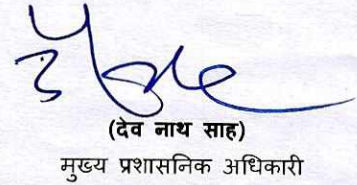 (देव नाथ साह)
मुख्य प्रशासनिक अधिकारी